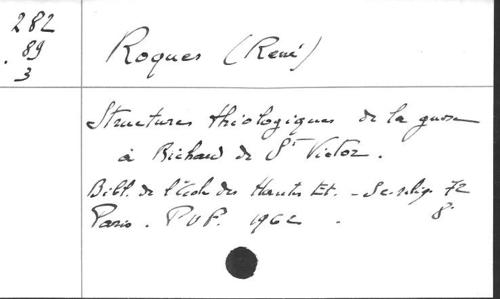 282
. 89
3
Roques (René)
Structures théologiques de la gnose
à Richard de St Victor.
Bibl. de l'École des Hautes Et. - Sc. relig. 72
Paris. PUF. 1962. 8°